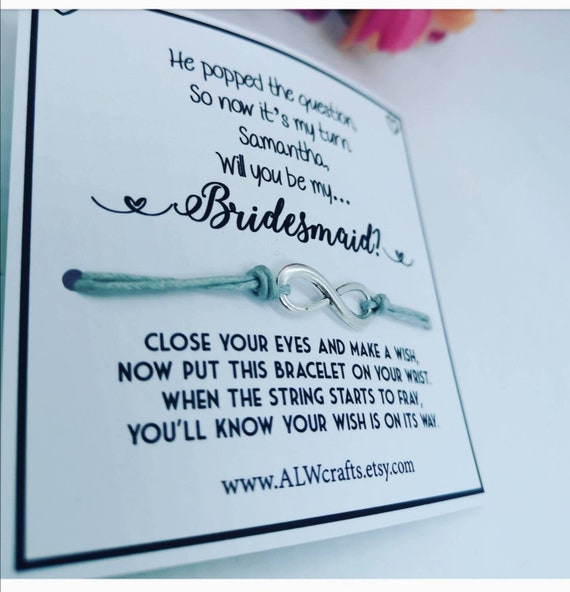 He popped the question,
So now it's my turn
Samantha,
Will you be my...
Bridesmaid?
CLOSE YOUR EYES AND MAKE A WISH,
NOW PUT THIS BRACELET ON YOUR WRIST.
WHEN THE STRING STARTS TO FRAY,
YOU'LL KNOW YOUR WISH IS ON ITS WAY.
www.ALWcrafts.etsy.com